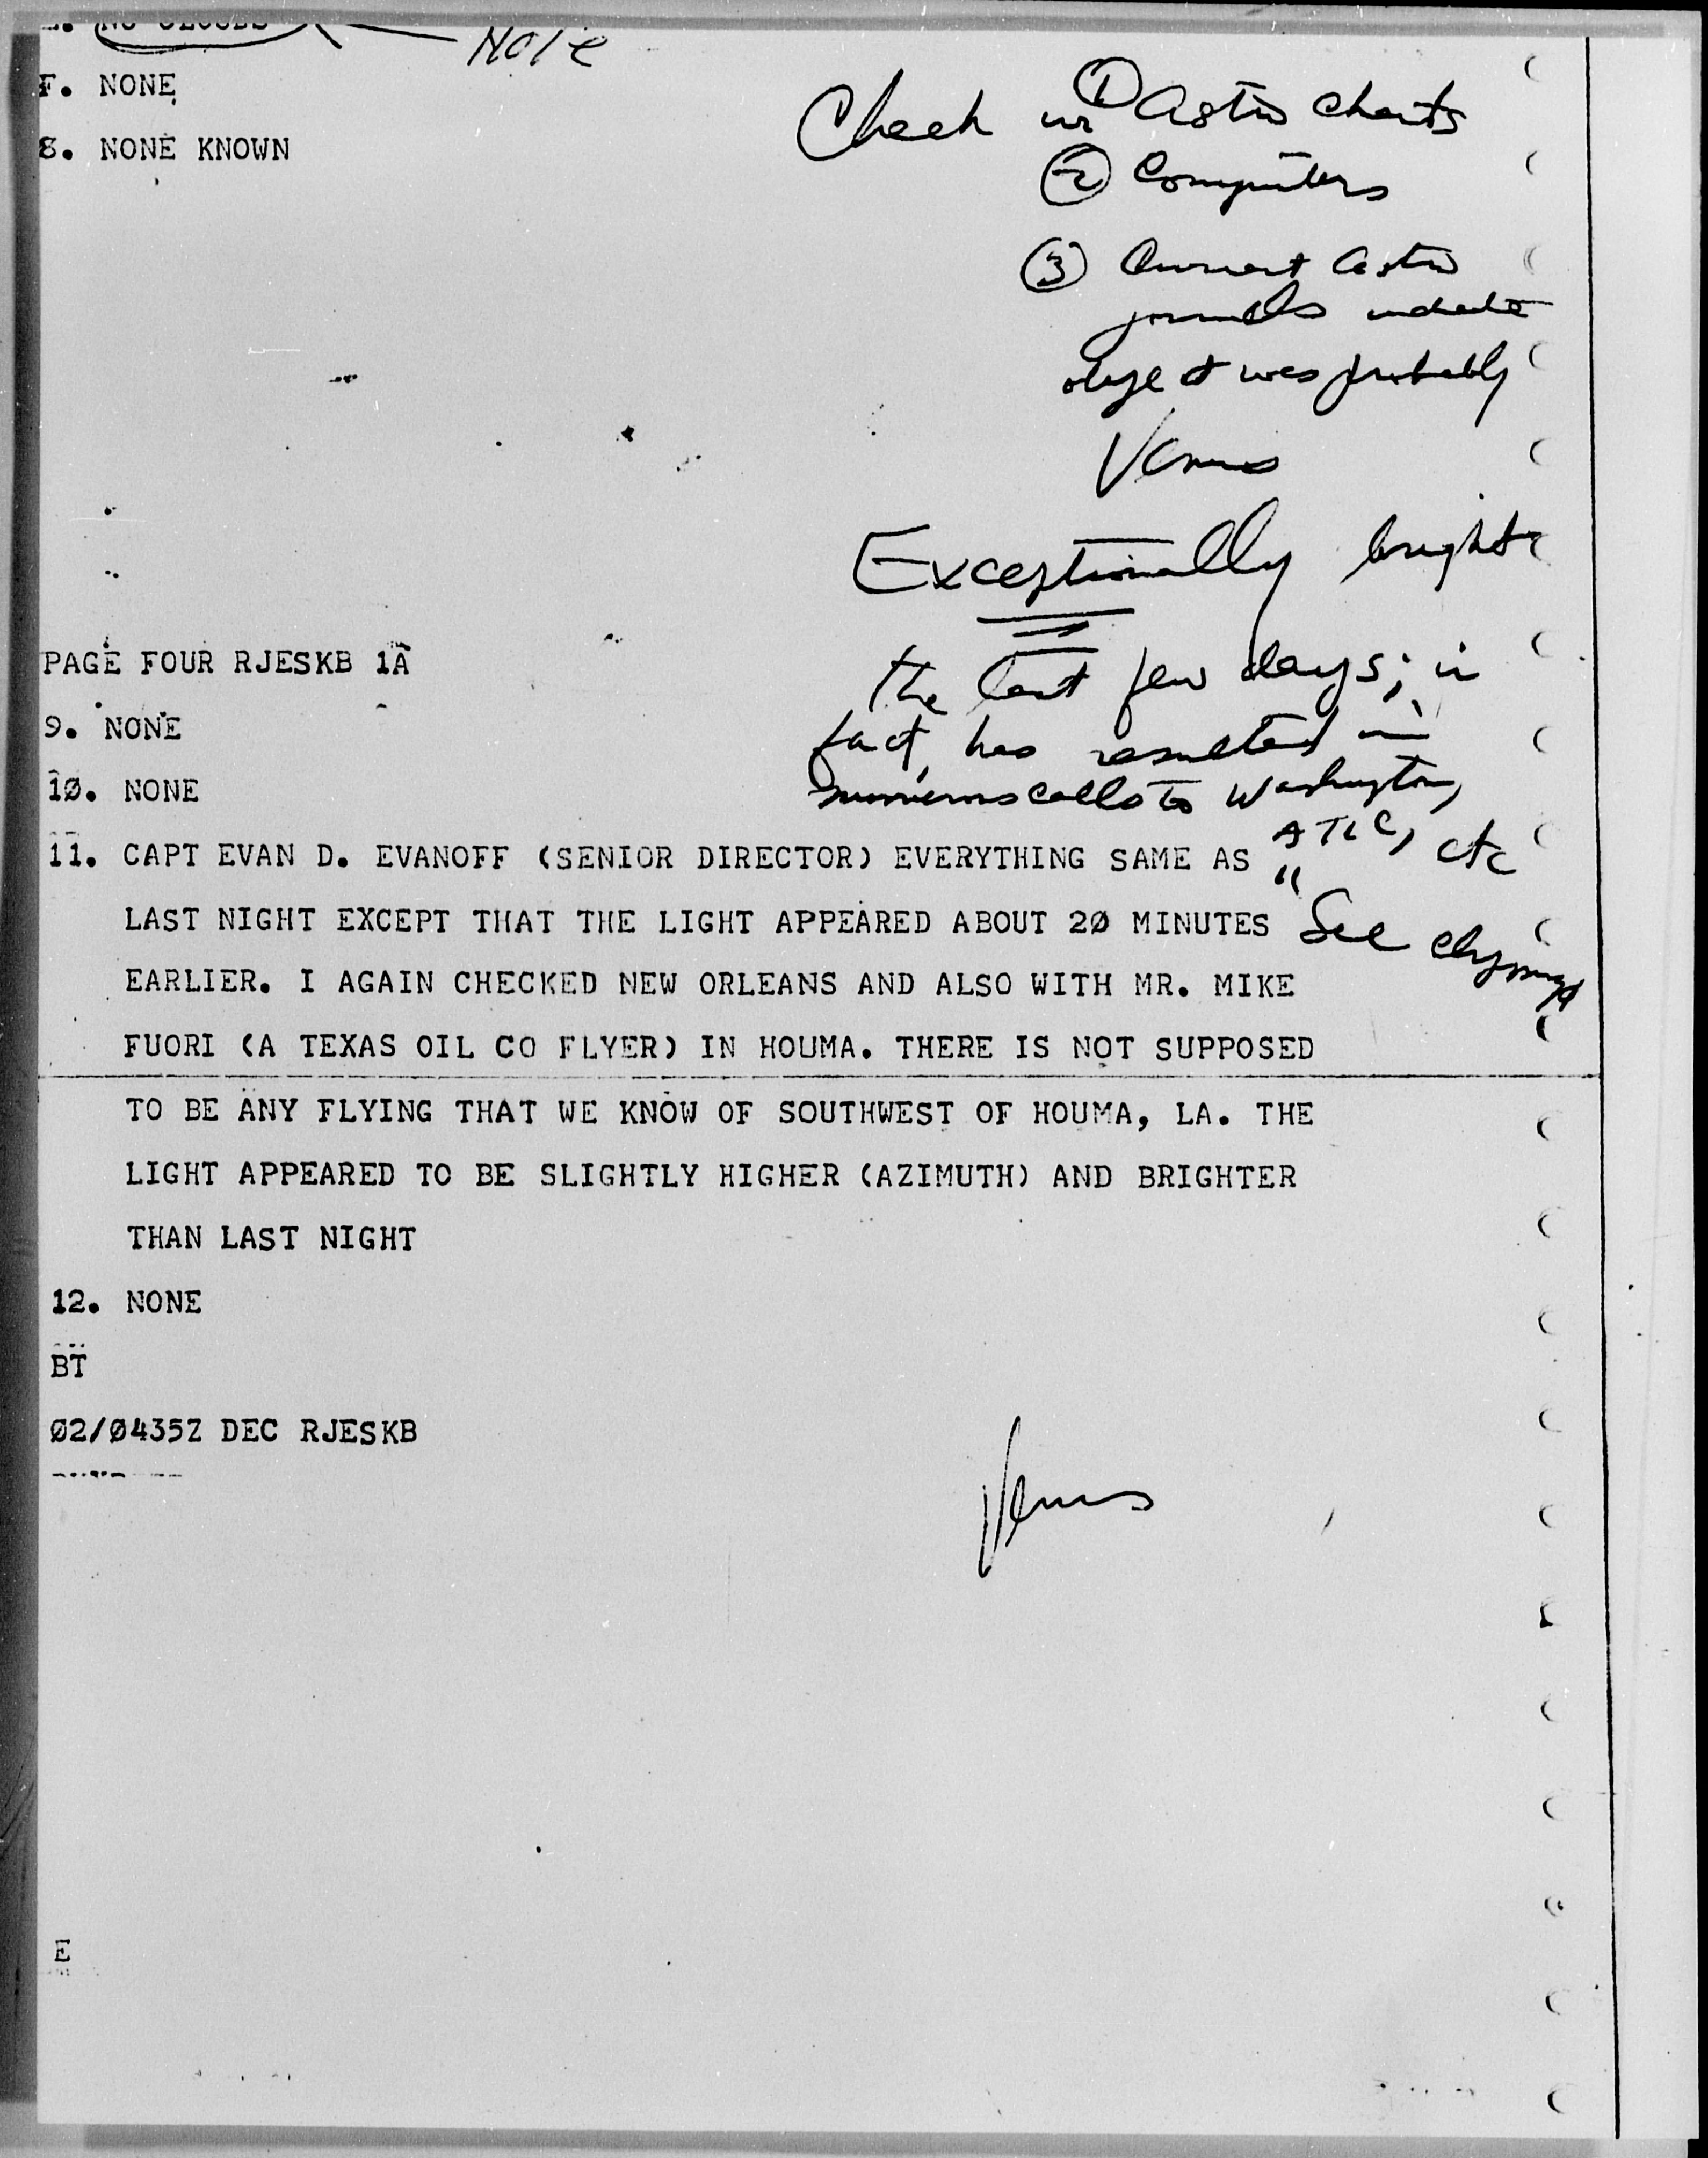 E. NO CLOUDS
Note
F. NONE
8. NONE KNOWN
Check w ① Astro charts
② Computers
③ Current Astro
journals indicate
object was probably
Venus
Exceptionally bright
the last few days; in
fact, has resulted in
numerous calls to Washington,
ATIC, etc
"See clippings
PAGE FOUR RJESKB 1A
9. NONE
1Ø. NONE
11. CAPT EVAN D. EVANOFF (SENIOR DIRECTOR) EVERYTHING SAME AS
LAST NIGHT EXCEPT THAT THE LIGHT APPEARED ABOUT 2Ø MINUTES
EARLIER. I AGAIN CHECKED NEW ORLEANS AND ALSO WITH MR. MIKE
FUORI (A TEXAS OIL CO FLYER) IN HOUMA. THERE IS NOT SUPPOSED
TO BE ANY FLYING THAT WE KNOW OF SOUTHWEST OF HOUMA, LA. THE
LIGHT APPEARED TO BE SLIGHTLY HIGHER (AZIMUTH) AND BRIGHTER
THAN LAST NIGHT
12. NONE
BT
Ø2/Ø435Z DEC RJESKB
Venus
E